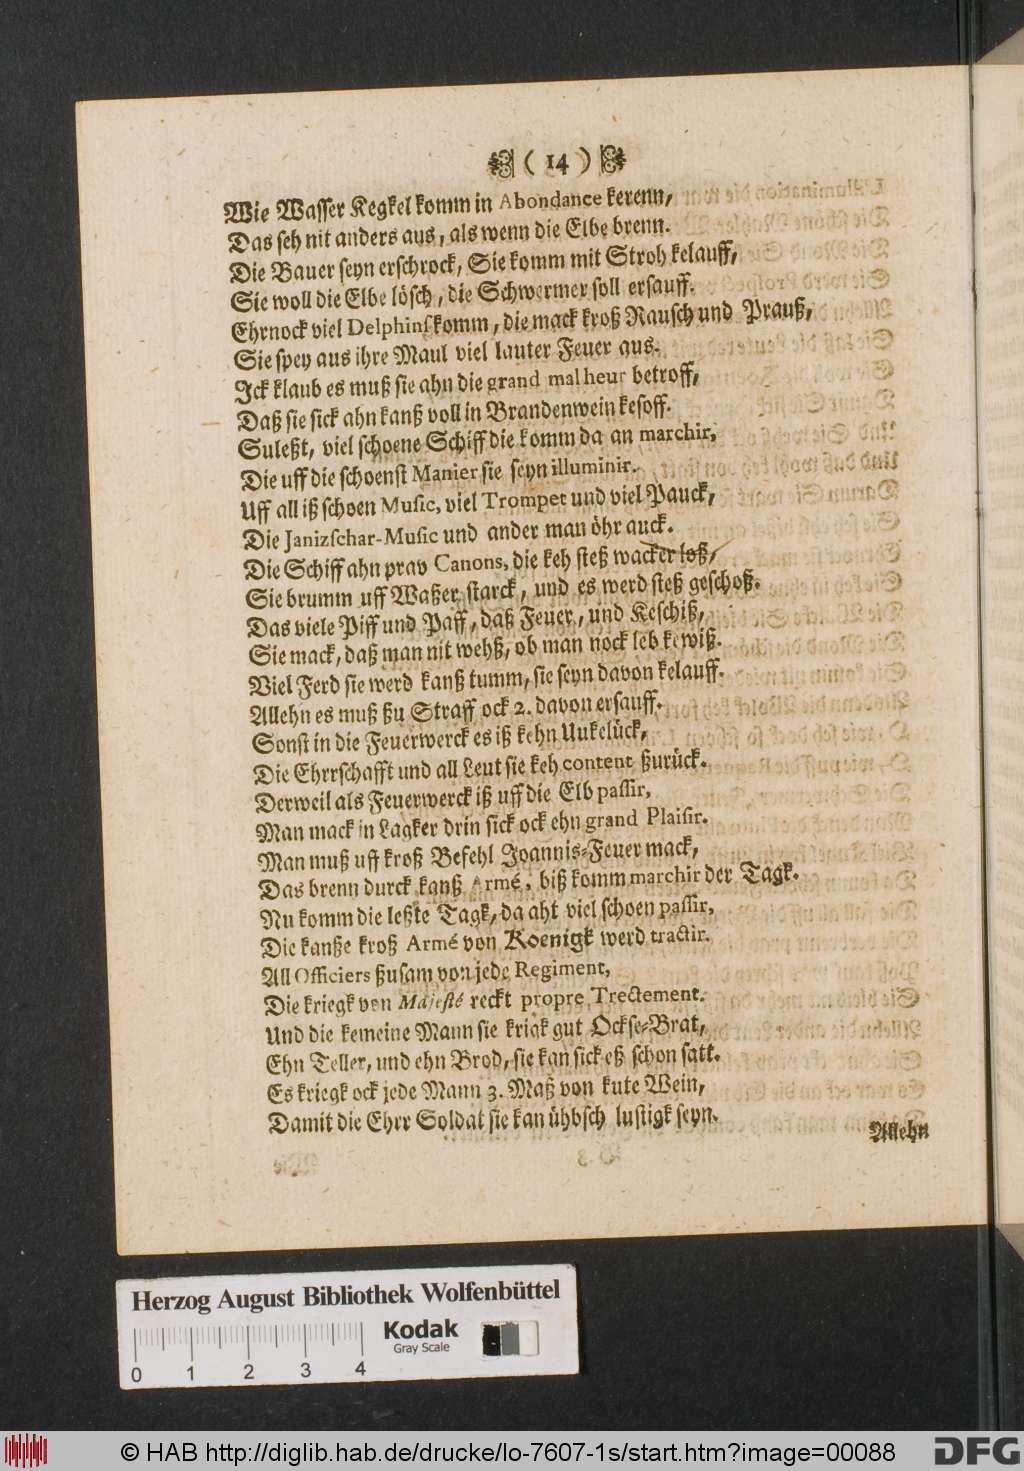 ( 14 )
Wie Wasser Kegkel komm in Abondance kerenn,
Das seh nit anders aus, als wenn die Elbe brenn.
Die Bauer seyn erschrock, Sie komm mit Stroh kelauff,
Sie woll die Elbe lösch, die Schwermer soll ersauff.
Ehrnock viel Delphins komm, die mack kroß Rausch und Prauß,
Sie spey aus ihre Maul viel lauter Feuer aus.
Ick klaub es muß sie ahn die grand malheur betroff,
Daß sie sick ahn kanß voll in Brandenwein kesoff.
Suleßt, viel schoene Schiff die komm da an marchir,
Die uff die schoenst Manier sie seyn illuminir.
Uff all iß schoen Music, viel Trompet und viel Pauck,
Die Janizschar-Music und ander man öhr auck.
Die Schiff ahn prav Canons, die keh steß wacker loß,
Sie brumm uff Waßer starck, und es werd steß geschoß.
Das viele Piff und Paff, daß Feuer, und Keschiß,
Sie mack, daß man nit wehß, ob man nock leb kewiß.
Viel Ferd sie werd kanß tumm, sie seyn davon kelauff.
Allehn es muß ßu Straff ock 2. davon ersauff.
Sonst in die Feuerwerck es iß kehn Unkelück,
Die Ehrrschafft und all Leut sie keh content ßurück.
Derweil als Feuerwerck iß uff die Elb passir,
Man mack in Lagker drin sick ock ehn grand Plaisir.
Man muß uff kroß Befehl Joannis-Feuer mack,
Das brenn durck kanß Armé, biß komm marchir der Tagk.
Nu komm die leßte Tagk, da aht viel schoen passir,
Die kanße kroß Armé von Koenigk werd tractir.
All Officiers ßusam von jede Regiment,
Die kriegk von Majesté reckt propre Trectement.
Und die kemeine Mann sie krigk gut Ockse-Brat,
Ehn Teller, und ehn Brod, sie kan sick eß schon satt.
Es kriegk ock jede Mann 3. Maß von kute Wein,
Damit die Ehrr Soldat sie kan ühbsch lustigk seyn.
Allehn
Herzog August Bibliothek Wolfenbüttel
Kodak
Gray Scale
0 1 2 3 4
© HAB http://diglib.hab.de/drucke/lo-7607-1s/start.htm?image=00088
DFG